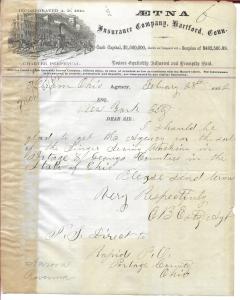 INCORPORATED A. D. 1819.
ÆTNA
6
Insurance Company, Hartford, Conn.
Cash Capital, $1,500,000, Surplus of $
CHARTER PERPETUAL.
Losses Equitably Adjusted and Promptly Paid.
Hiram Ohio AGENCY, February 28th
ESQ.
New York City
DEAR SIR:
I should be
glad to get the Agency for the sale
of the Singer Sewing Machine in
Portage & Geauga Counties in the
State of Ohio
Please send terms
Very Respectfully
P.S. Direct to
Rapids P.O.
Portage County
Ohio
Ravenna